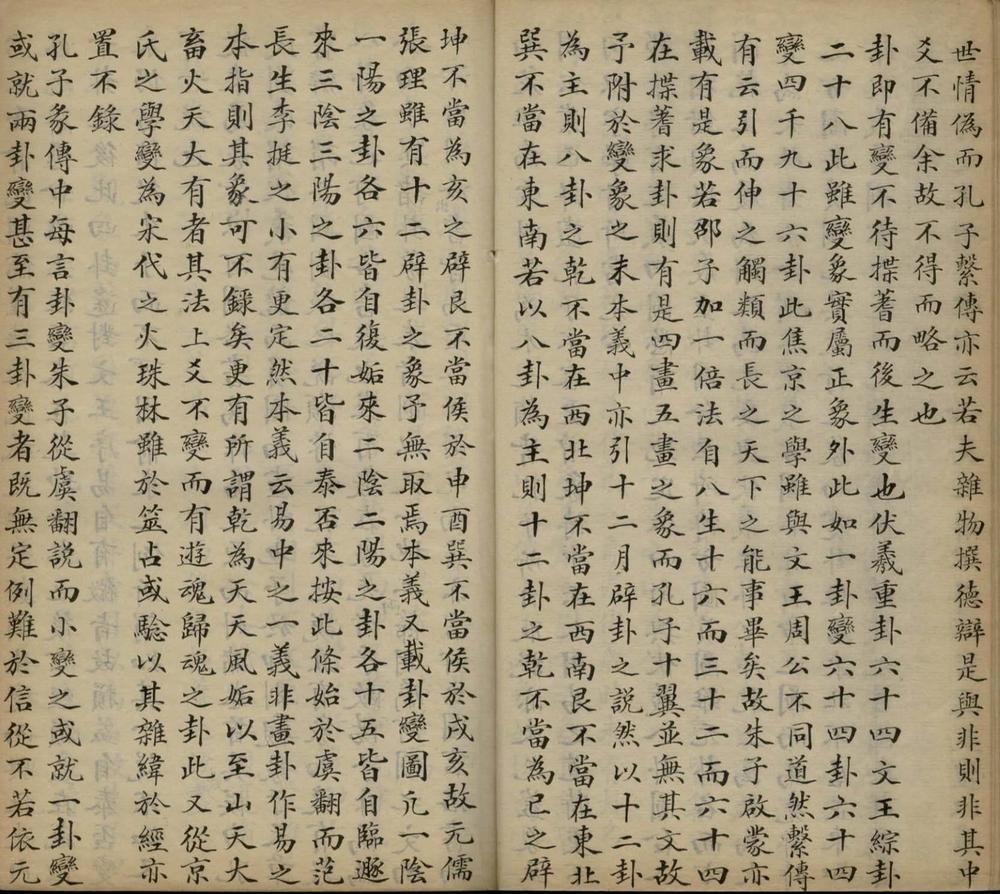 世情偽而孔子繫傳亦云若夫雜物撰德辯是與非則非其中
爻不備余故不得而略之也
卦即有變不待揲蓍而後生變也伏羲重卦六十四文王綜卦
二十八此雖變象實屬正象外此如一卦變六十四卦六十四
變四千九十六卦此焦京之學雖與文王周公不同道然繫傳
有云引而伸之觸類而長之天下之能事畢矣故朱子啟蒙亦
載有是象若邵子加一倍法自八生十六而三十二而六十四
在揲蓍求卦則有是四畫五畫之象而孔子十翼並無其文故
予附於變象之末本義中亦引十二月辟卦之説然以十二卦
為主則八卦之乾不當在西北坤不當在西南艮不當在東北
巽不當在東南若以八卦為主則十二卦之乾不當為巳之辟
坤不當為亥之辟艮不當侯於申酉巽不當侯於戌亥故元儒
張理雖有十二辟卦之象予無取焉本義又載卦變圖凡一陰
一陽之卦各六皆自復姤來二陰二陽之卦各十五皆自臨遯
來三陰三陽之卦各二十皆自泰否來按此條始於虞翻而范
長生李挺之小有更定然本義云易中之一義非畫卦作易之
本指則其象可不錄矣更有所謂乾為天天風姤以至山天大
畜火天大有者其法上爻不變而有遊魂歸魂之卦此又從京
氏之學變為宋代之火珠林雖於筮占或驗以其雜緯於經亦
置不錄
孔子彖傳中每言卦變朱子從虞翻説而小變之或就一卦變
或就兩卦變甚至有三卦變者既無定例難於信從不若依元